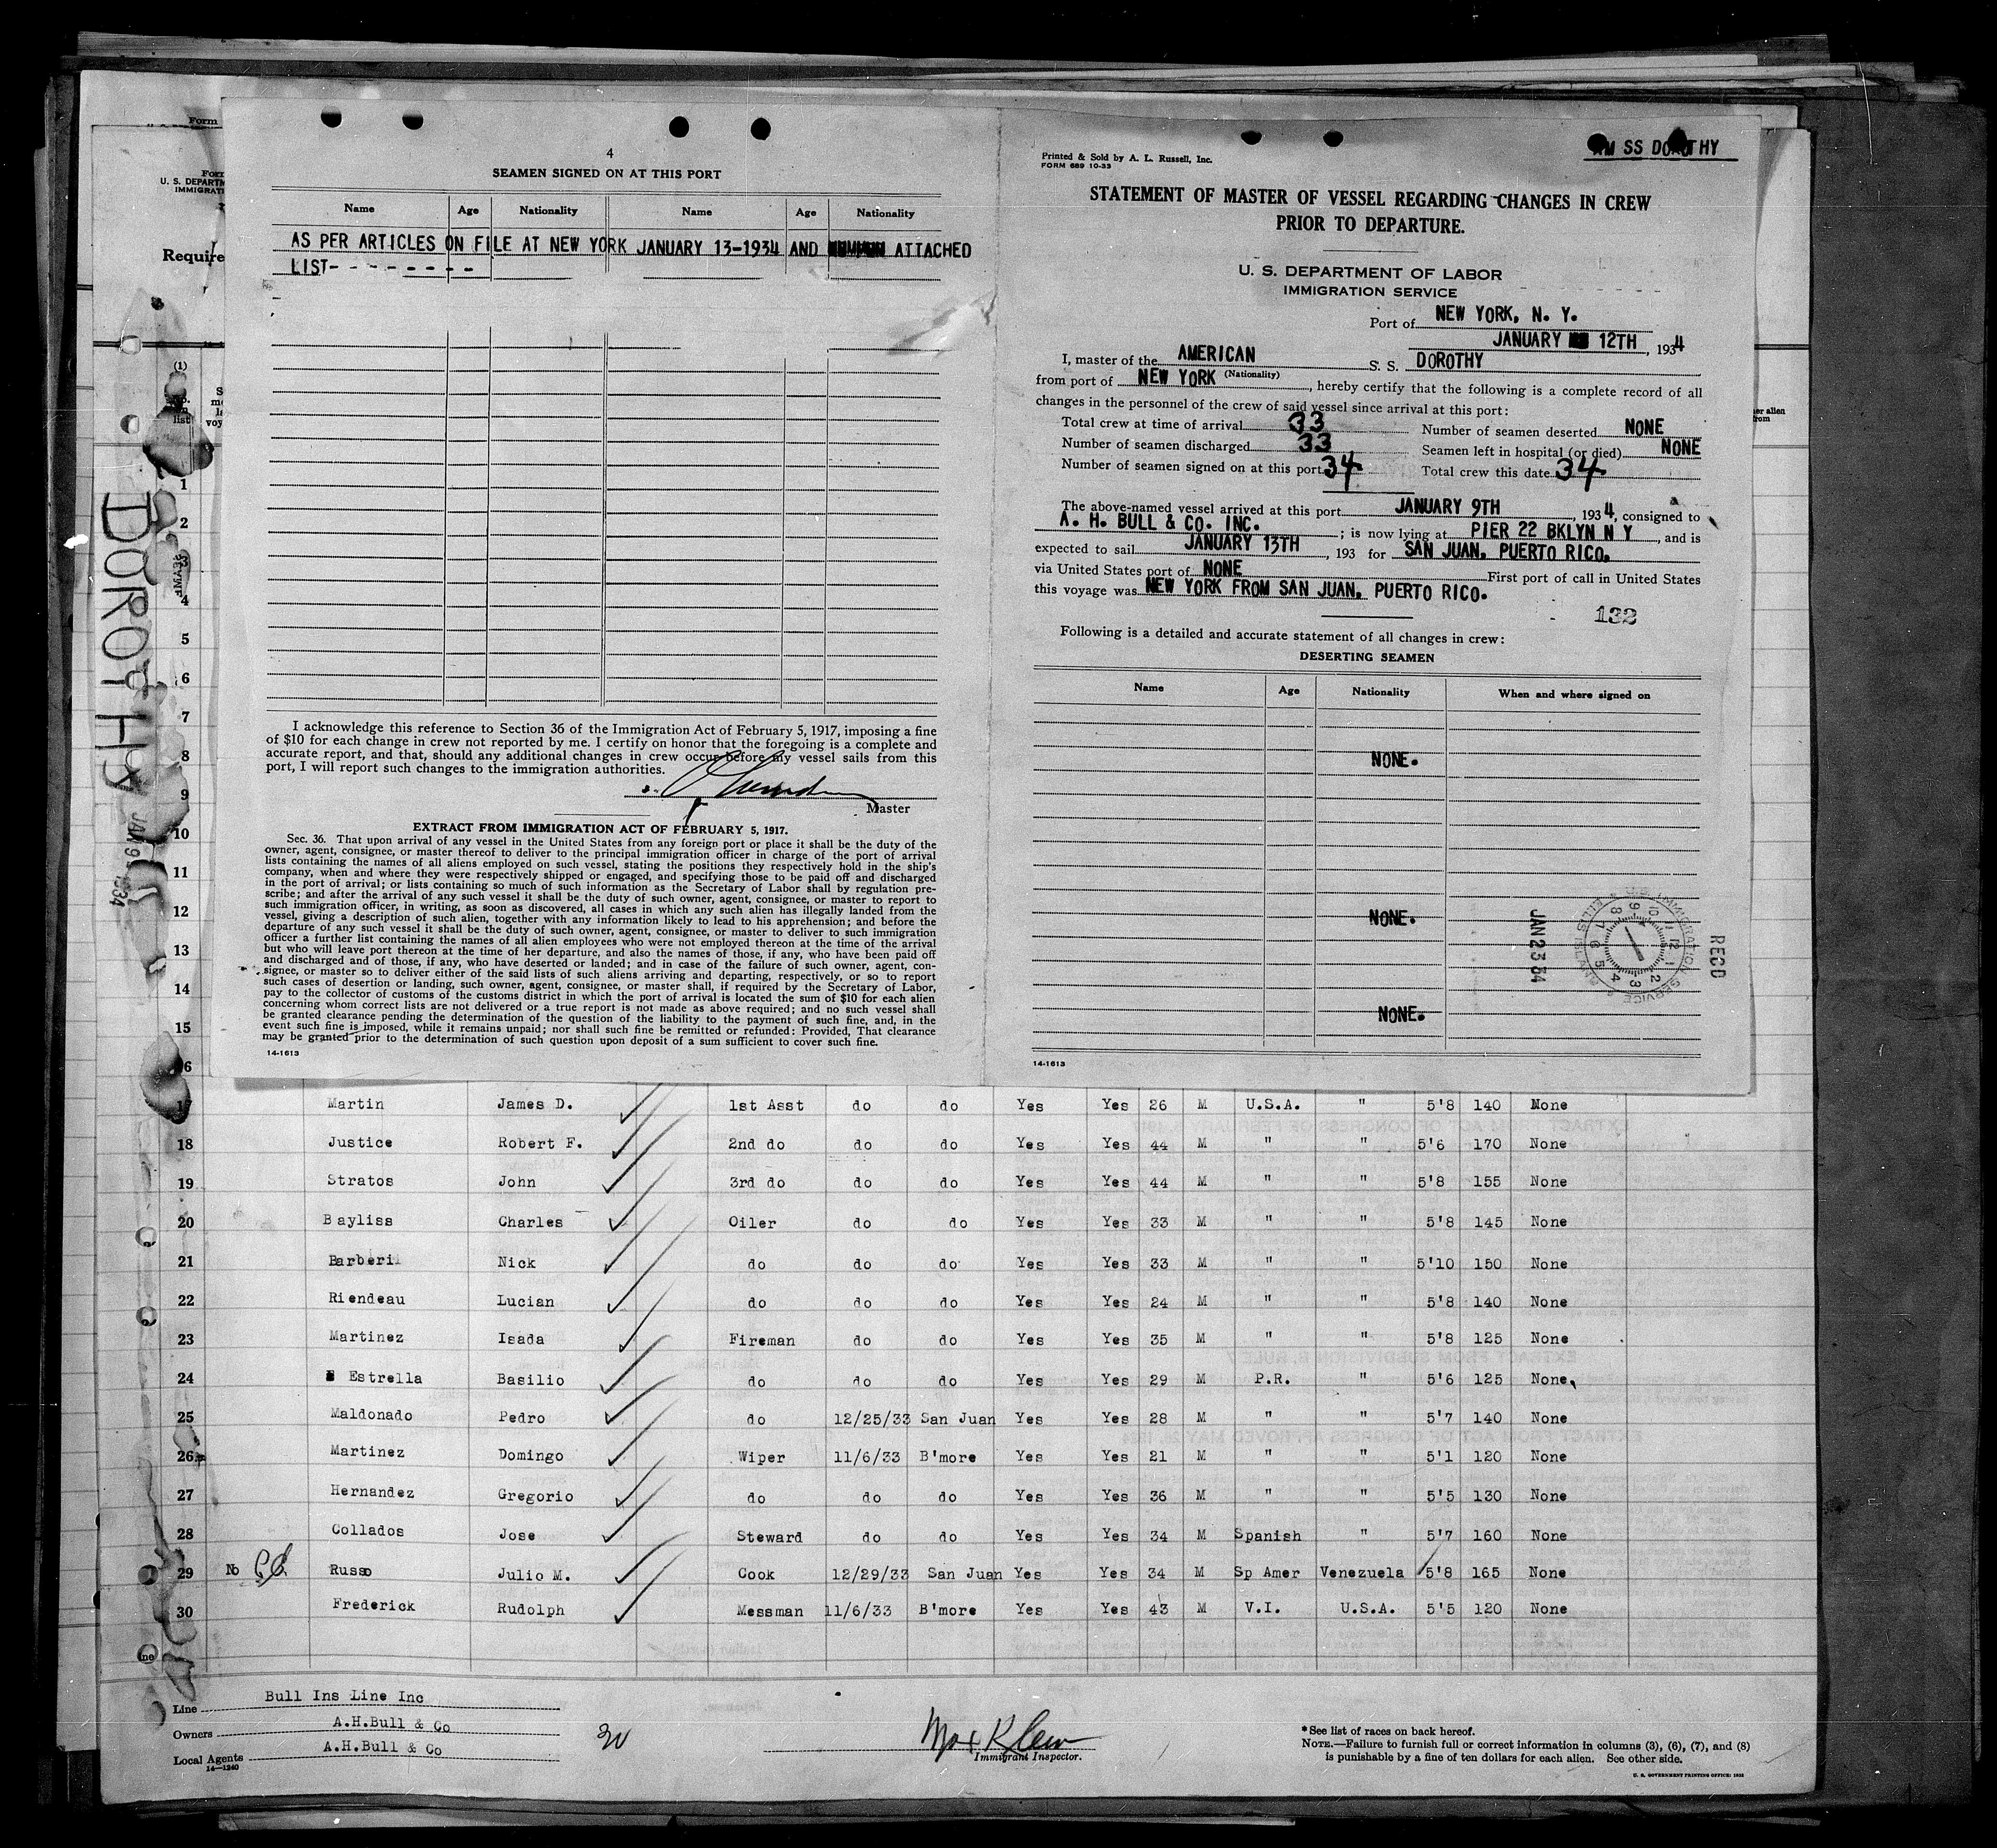 4
SEAMEN SIGNED ON AT THIS PORT
Name Age Nationality Name Age Nationality
AS PER ARTICLES ON FILE AT NEW YORK JANUARY 13-1934 AND ATTACHED
LIST- - - - - - - -
I acknowledge this reference to Section 36 of the Immigration Act of February 5, 1917, imposing a fine
of $10 for each change in crew not reported by me. I certify on honor that the foregoing is a complete and
accurate report, and that, should any additional changes in crew occur before my vessel sails from this
port, I will report such changes to the immigration authorities.
Master
EXTRACT FROM IMMIGRATION ACT OF FEBRUARY 5, 1917.
Sec. 36. That upon arrival of any vessel in the United States from any foreign port or place it shall be the duty of the
owner, agent, consignee, or master thereof to deliver to the principal immigration officer in charge of the port of arrival
lists containing the names of all aliens employed on such vessel, stating the positions they respectively hold in the ship's
company, when and where they were respectively shipped or engaged, and specifying those to be paid off and discharged
in the port of arrival; or lists containing so much of such information as the Secretary of Labor shall by regulation pre-
scribe; and after the arrival of any such vessel it shall be the duty of such owner, agent, consignee, or master to report to
such immigration officer, in writing, as soon as discovered, all cases in which any such alien has illegally landed from the
vessel, giving a description of such alien, together with any information likely to lead to his apprehension; and before the
departure of any such vessel it shall be the duty of such owner, agent, consignee, or master to deliver to such immigration
officer a further list containing the names of all alien employees who were not employed thereon at the time of the arrival
but who will leave port thereon at the time of her departure, and also the names of those, if any, who have been paid off
and discharged and of those, if any, who have deserted or landed; and in case of the failure of such owner, agent, con-
signee, or master so to deliver either of the said lists of such aliens arriving and departing, respectively, or so to report
such cases of desertion or landing, such owner, agent, consignee, or master shall, if required by the Secretary of Labor,
pay to the collector of customs of the customs district in which the port of arrival is located the sum of $10 for each alien
concerning whom correct lists are not delivered or a true report is not made as above required; and no such vessel shall
be granted clearance pending the determination of the question of the liability to the payment of such fine, and, in the
event such fine is imposed, while it remains unpaid; nor shall such fine be remitted or refunded: Provided, That clearance
may be granted prior to the determination of such question upon deposit of a sum sufficient to cover such fine.
14-1613
Printed & Sold by A. L. Russell, Inc.
FORM 689 10-33
SS DOROTHY
STATEMENT OF MASTER OF VESSEL REGARDING CHANGES IN CREW
PRIOR TO DEPARTURE.
U. S. DEPARTMENT OF LABOR
IMMIGRATION SERVICE
Port of NEW YORK, N. Y.
JANUARY 12TH, 1934
I, master of the AMERICAN S. S. DOROTHY
(Nationality)
from port of NEW YORK, hereby certify that the following is a complete record of all
changes in the personnel of the crew of said vessel since arrival at this port:
Total crew at time of arrival 33 Number of seamen deserted NONE
Number of seamen discharged 33 Seamen left in hospital (or died) NONE
Number of seamen signed on at this port 34 Total crew this date 34
The above-named vessel arrived at this port JANUARY 9TH, 1934, consigned to
A. H. BULL & CO. INC.; is now lying at PIER 22 BKLYN N Y, and is
expected to sail JANUARY 13TH, 193 for SAN JUAN, PUERTO RICO.
via United States port of NONE First port of call in United States
this voyage was NEW YORK FROM SAN JUAN, PUERTO RICO.
132
Following is a detailed and accurate statement of all changes in crew:
DESERTING SEAMEN
Name Age Nationality When and where signed on
NONE.
NONE.
NONE.
RECD
U.S. IMMIGRATION SERVICE ELLIS ISLAND
JAN 23 34
14-1613
Form
U. S. DEPARTM
IMMIGRATI
Require
(1)
list
DOROTHY
JAN 9 1934
1
2
3
4
5
6
7
8
9
10
11
12
13
14
15
16
17 Martin James D. 1st Asst do do Yes Yes 26 M U.S.A. " 5'8 140 None
18 Justice Robert F. 2nd do do do Yes Yes 44 M " " 5'6 170 None
19 Stratos John 3rd do do do Yes Yes 44 M " " 5'8 155 None
20 Bayliss Charles Oiler do do Yes Yes 33 M " " 5'8 145 None
21 Barberi Nick do do do Yes Yes 33 M " " 5'10 150 None
22 Riendeau Lucian do do do Yes Yes 24 M " " 5'8 140 None
23 Martinez Isada Fireman do do Yes Yes 35 M " " 5'8 125 None
24 Estrella Basilio do do do Yes Yes 29 M P.R. " 5'6 125 None
25 Maldonado Pedro do 12/25/33 San Juan Yes Yes 28 M " " 5'7 140 None
26 Martinez Domingo Wiper 11/6/33 B'more Yes Yes 21 M " " 5'1 120 None
27 Hernandez Gregorio do do do Yes Yes 36 M " " 5'5 130 None
28 Collados Jose Steward do do Yes Yes 34 M Spanish " 5'7 160 None
29 No Russo Julio M. Cook 12/29/33 San Juan Yes Yes 34 M Sp Amer Venezuela 5'8 165 None
30 Frederick Rudolph Messman 11/6/33 B'more Yes Yes 43 M V.I. U.S.A. 5'5 120 None
Line Bull Ins Line Inc
Owners A.H.Bull & Co
Local Agents A.H.Bull & Co
14-1240
30
Max Klein
Immigrant Inspector.
*See list of races on back hereof.
NOTE.—Failure to furnish full or correct information in columns (3), (6), (7), and (8)
is punishable by a fine of ten dollars for each alien. See other side.
U. S. GOVERNMENT PRINTING OFFICE: 1932